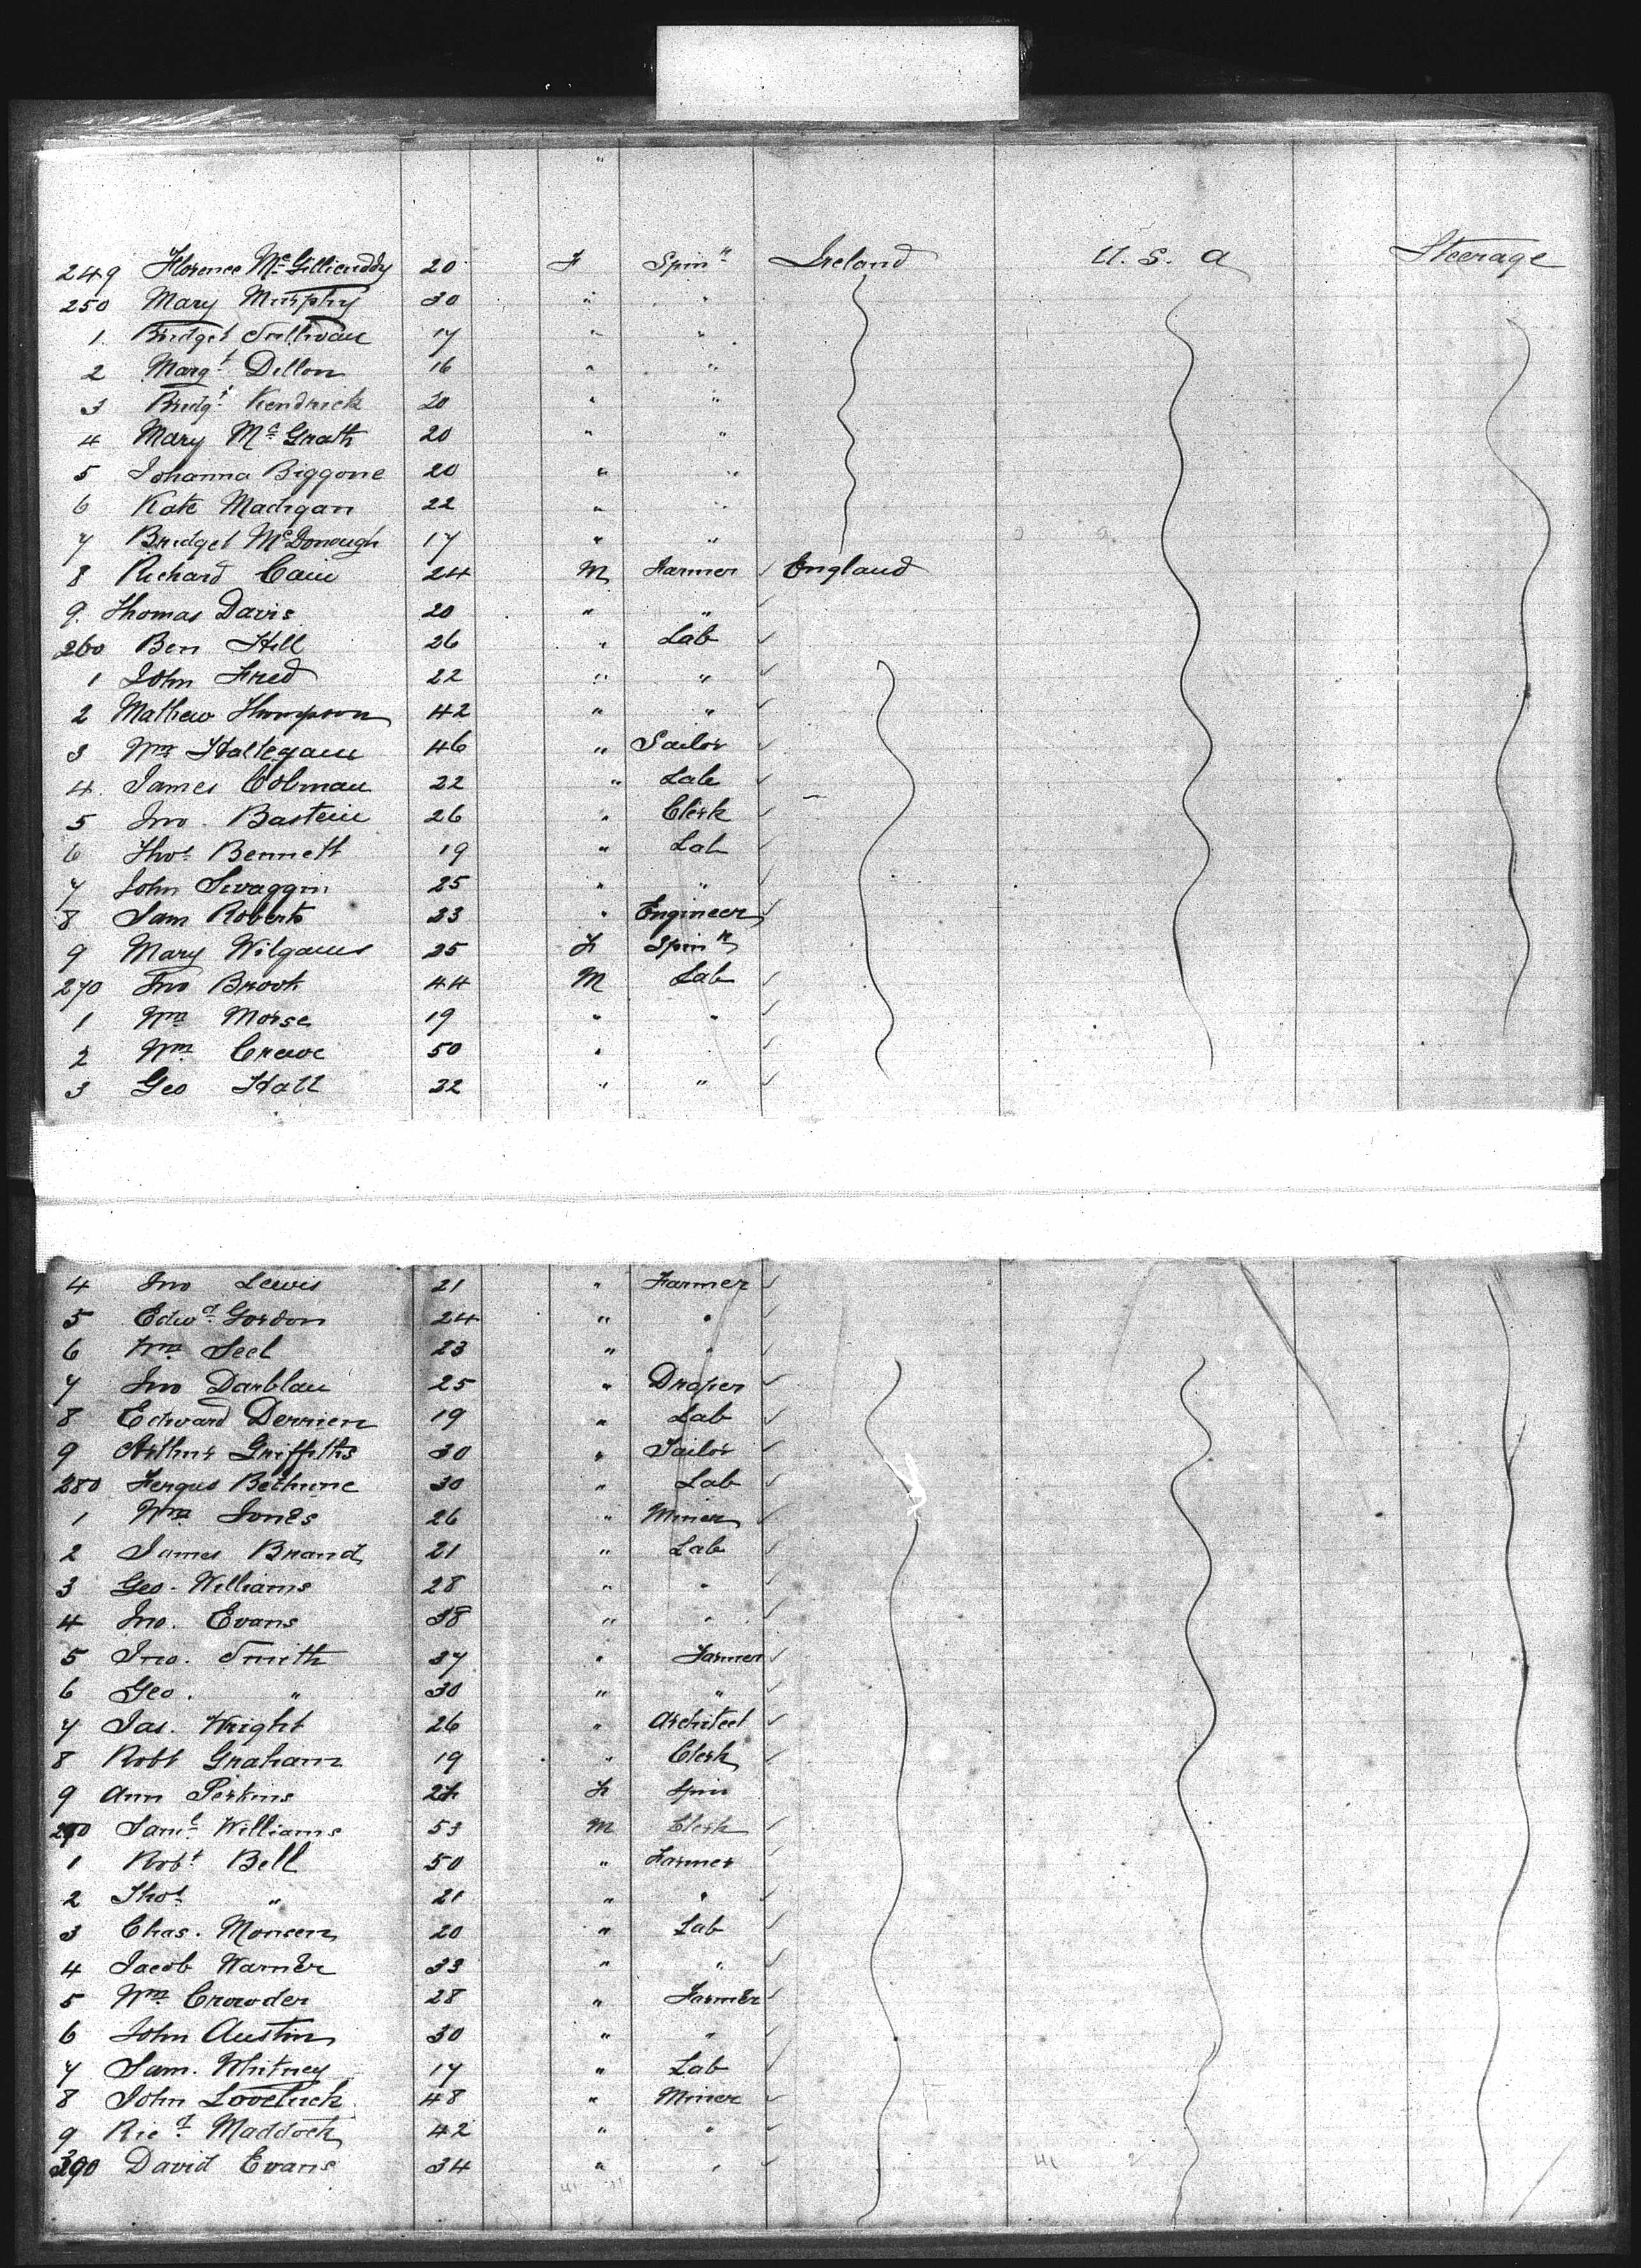 249 Florence McGillicuddy 20 F Spinr Ireland U.S.A Steerage
250 Mary Murphy 30 " "
1 Bridget Sullivan 17 " "
2 Margt Dillon 16 " "
3 Bridgt Kendrick 20 " "
4 Mary McGrath 20 " "
5 Johanna Biggone 20 " "
6 Kate Madigan 22 " "
7 Bridget McDonough 17 " "
8 Richard Cain 24 M Farmer ✓ England
9. Thomas Davis 20 " " ✓
260 Ben Hill 26 " Lab ✓
1 John Fred 22 " " ✓
2 Mathew Thompson 42 " " ✓
3 Wm 46 " ✓
4. James Colman 22 " Lab ✓
5 Jno. Bastein 26 " Clerk ✓
6 Thos Bennett 19 " Lab ✓
7 John Swaggin 25 " " ✓
8 Sam Roberts 23 " Engineer ✓
9 Mary Wilgaus 25 F Spinr
270 Jno Brook 44 M Lab ✓
1 Wm Morse 19 " " ✓
2 Wm Crewe 50 " " ✓
3 Geo Hall 32 " " ✓
4 Jno Lewis 21 " Farmer ✓
5 Edwd Gordon 24 " " ✓
6 Wm Seel 23 " " ✓
7 Jno Darblau 25 " Draper ✓
8 Edward Derrien 19 " Lab ✓
9 Arthur Griffiths 30 " Tailor ✓
280 Fergus Bethune 30 " Lab ✓
1 Wm Jones 26 " Miner ✓
2 James Brand 21 " Lab ✓
3 Geo. Williams 28 " " ✓
4 Jno. Evans 38 " " ✓
5 Jno. Smith 37 " Farmer ✓
6 Geo. " 30 " " ✓
7 Jas. Wright 26 " Architect ✓
8 Robt Graham 19 " Clerk ✓
9 Ann Perkins F Spin
290 Saml Williams 53 M Clerk ✓
1 Robt Bell 50 " Farmer ✓
2 Thos " 21 " " ✓
3 Chas. Monsen 20 " Lab ✓
4 Jacob Warner 33 " " ✓
5 Wm Crowder 28 " Farmer ✓
6 John Austin 30 " " ✓
7 Sam. Whitney 17 " Lab ✓
8 John Loveluck 48 " Miner ✓
9 Ricd Maddock 42 " " ✓
300 David Evans 34 " " ✓